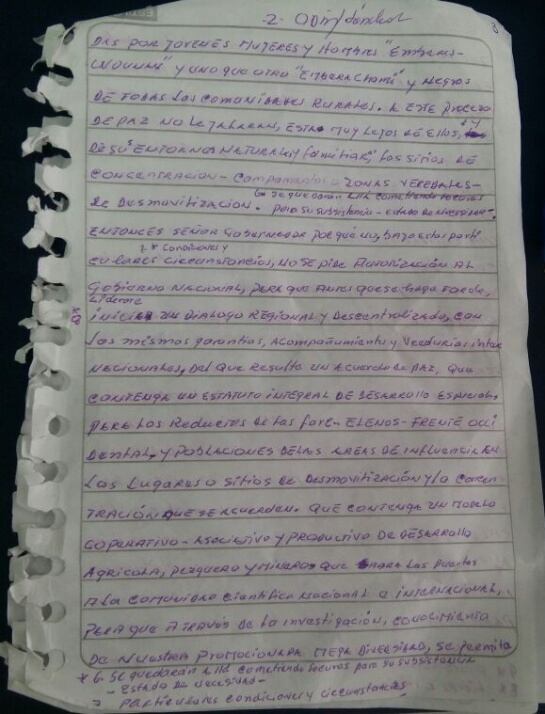 2. Odin Sánchez
DAS POR JOVENES MUJERES Y HOMBRES "EMBERAS-
WOUNAN" Y UNO QUE OTRO "EMBERA CHAMI" Y NEGROS
DE TODAS LAS COMUNIDADES RURALES. A ESTE PROCESO
DE PAZ NO LE JALARAN, ESTÁ MUY LEJOS DE ELLOS, Y
DE SUS ENTORNOS NATURALES Y FAMILIAR, LOS SITIOS DE
CONCENTRACIÓN - CAMPAMENTOS ZONAS VEREDALES -
6 se quedarán allá cometiendo locuras
DE DESMOVILIZACIÓN. para su subsistencia - estado de necesidad -
ENTONCES SEÑOR GOBERNADOR PORQUE NO, BAJO ESTAS PARTI
7 * condiciones y
CULARES CIRCUNSTANCIAS, NO SE PIDE AUTORIZACIÓN AL
GOBIERNO NACIONAL, PARA QUE ANTES QUE SE HAGA TARDE,
LIDERE
UN DIALOGO REGIONAL Y DESCENTRALIZADO, CON
LAS MISMAS GARANTIAS, ACOMPAÑAMIENTO Y VEEDURIAS INTER
NACIONALES, DEL QUE RESULTE UN ACUERDO DE PAZ, QUE
CONTENGA UN ESTATUTO INTEGRAL DE DESARROLLO ESPECIAL,
PARA LOS REDUCTOS DE LAS FARC. ELENOS - FRENTE OCCI
DENTAL, Y POBLACIONES DE LAS AREAS DE INFLUENCIA EN
LOS LUGARES O SITIOS DE DESMOVILIZACIÓN Y/O CONCEN
TRACIÓN QUE SE ACUERDEN. QUE CONTENGA UN MODELO
COPERATIVO - ASOCIATIVO Y PRODUCTIVO DE DESARROLLO
AGRICOLA, PEZQUERO Y MINERO QUE ABRA LAS PUERTAS
A LA COMUNIDAD CIENTIFICA NACIONAL E INTERNACIONAL,
PARA QUE A TRAVÉS DE LA INVESTIGACIÓN, CONOCIMIENTO
DE NUESTRA PROMOCIONADA MEGA DIVERSIDAD, SE PERMITA
* 6 Se quedarán allá cometiendo locuras para su subsistencia
- Estado de necesidad -
7 particulares condiciones y circunstancias,